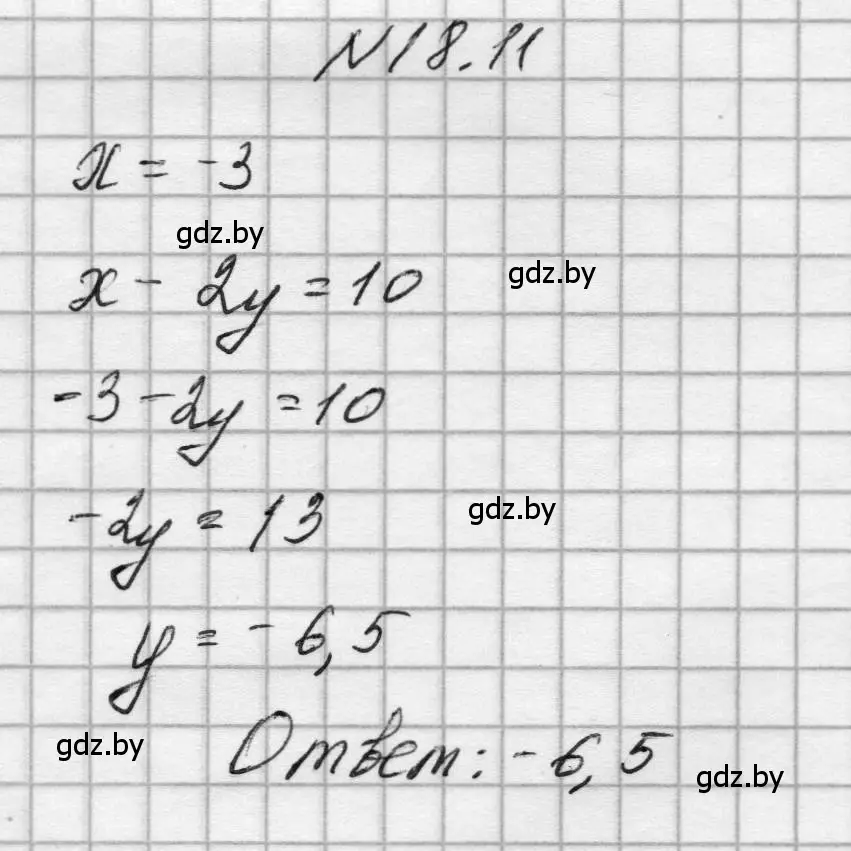 №18.11
x = -3
gdz.by
x - 2y = 10
gdz.by
-3 - 2y = 10
-2y = 13
gdz.by
y = -6,5
gdz.by
Ответ: -6,5
gdz.by